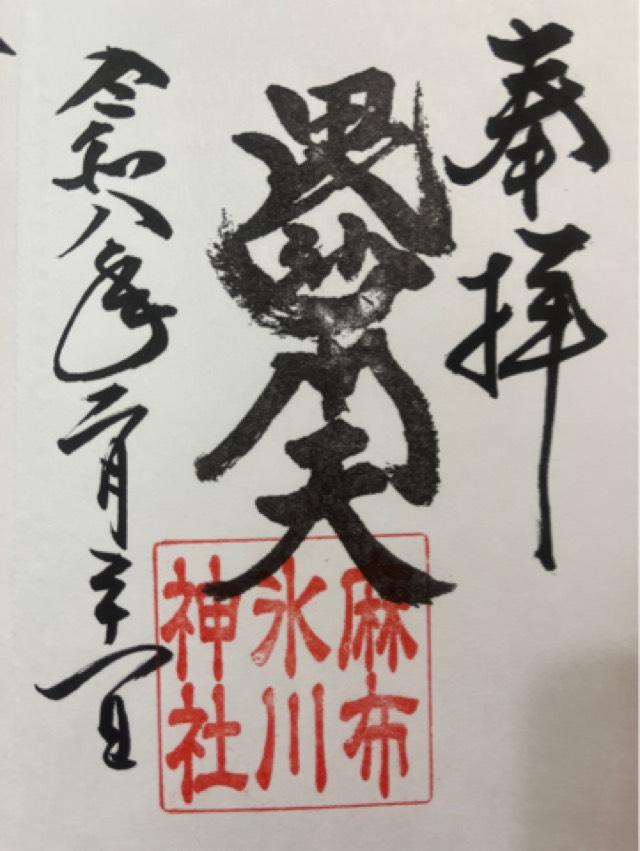 奉拝
毘沙門天
麻布
氷川
神社
令和八年二月二十一日